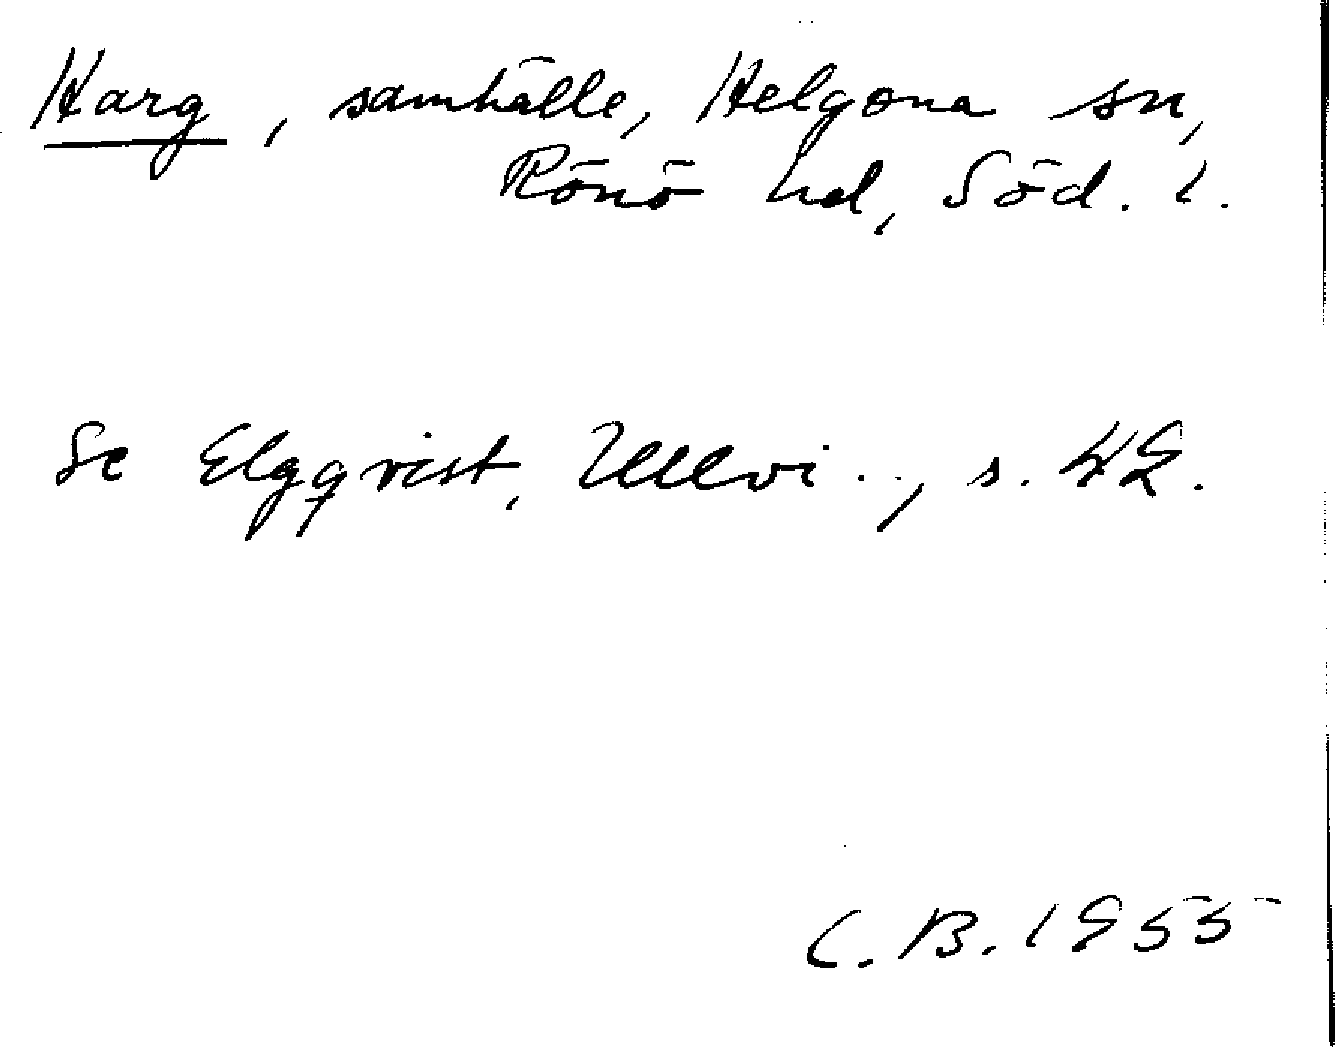 Harg, samhälle, Helgona sn,
Rönö hd, Söd. l.
Se Elgqvist, Ullvi.., s. 49.
C. B. 1955